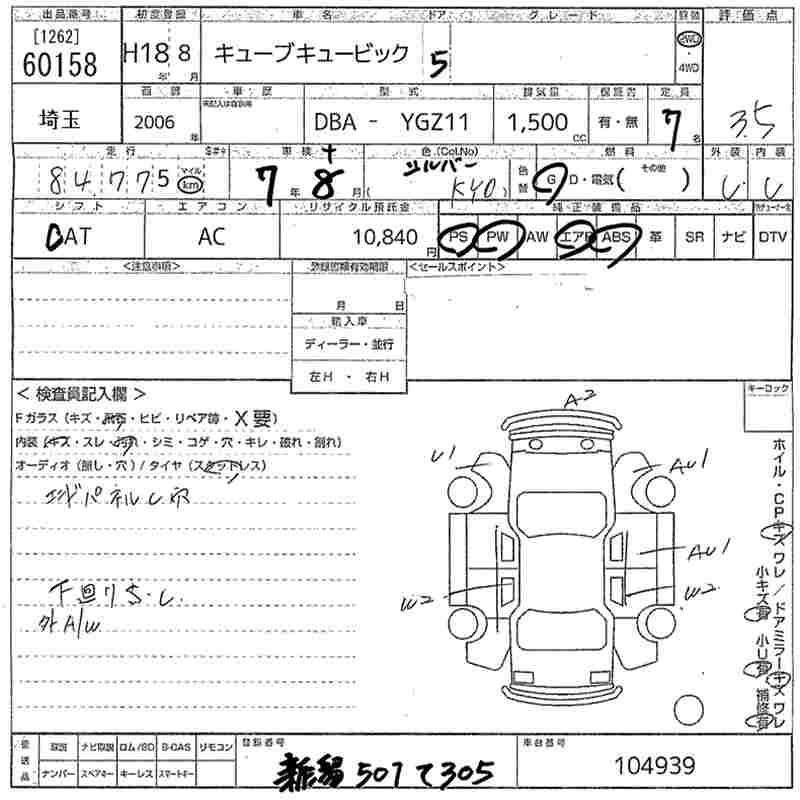 出品番号 初度登録 車名 ドア グレード 評価点
[1262]
60158 H18年 8月 キューブキュービック 5 2WD・4WD
西暦 車歴 型式 排気量 保証書 定員
埼玉 2006年 DBA - YGZ11 1,500cc 有・無 7名 3.5
走行 車検 色(Col.No) 燃料 外装 内装
84775 マイル km 7年 8月 シルバー K40 色替 G D・電気( その他 ) C C
シフト エアコン リサイクル預託金 純正装備品
AT AC 10,840円 PS PW AW エアB ABS 革 SR ナビ DTV
<注意事項> 登録書類有効期限 <セールスポイント>
月 日
輸入車
ディーラー・並行
左H ・ 右H
<検査員記入欄> キーロック
Fガラス(キズ・飛石・ヒビ・リペア跡・X要)
内装(キズ・スレ・汚れ・シミ・コゲ・穴・キレ・破れ・割れ)
オーディオ(無し・穴)/タイヤ(スタッドレス)
エンドパネルC穴
下回りS・C
外A/W
A2
U1 AU1
AU1
W2 W2
ホイル・CPキズ ワレ/ドアミラーキズ ワレ
小キズ有 小U有 補修有
後送品 取説 ナビ取説 ロム/SD B-CAS リモコン 登録番号 車台番号
ナンバー スペアキー キーレス スマートキー 新潟 501 て 305 104939